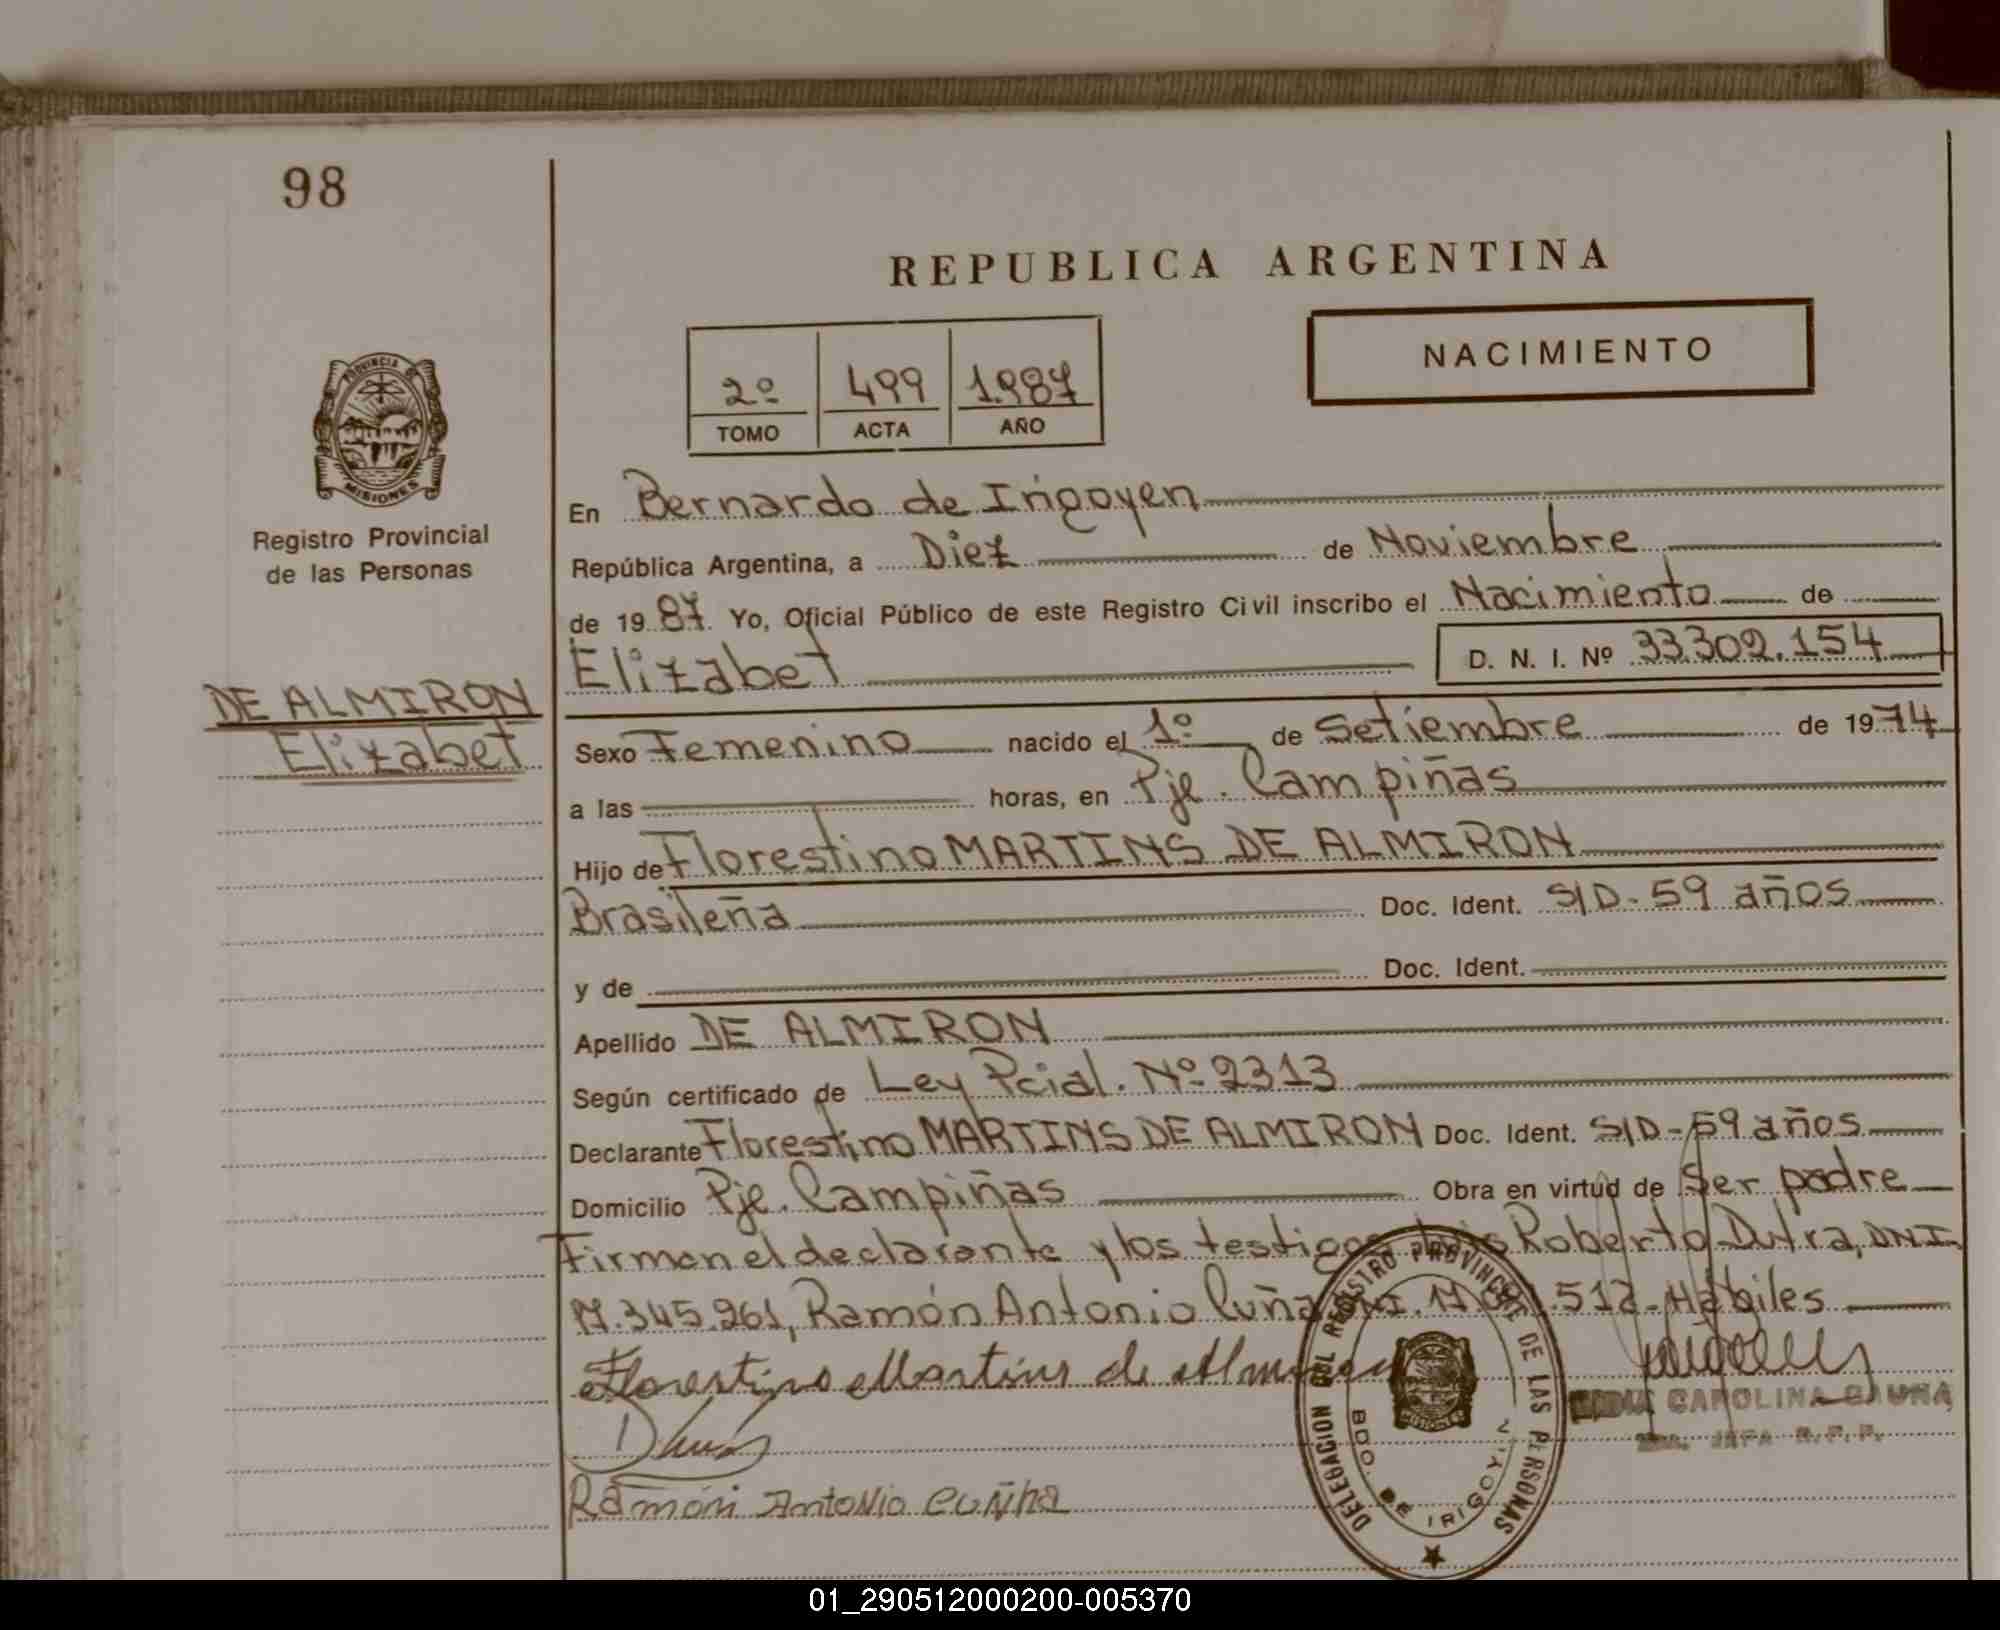 98
REPUBLICA ARGENTINA
NACIMIENTO
2º 499 1.987
TOMO ACTA AÑO
PROVINCIA DE
MISIONES
Registro Provincial
de las Personas
En Bernardo de Irigoyen
República Argentina, a Diez de Noviembre
de 19 87. Yo, Oficial Público de este Registro Civil inscribo el Nacimiento de
Elizabet D. N. I. Nº 33.302.154
DE ALMIRON
Elizabet
Sexo Femenino nacido el 1º de Setiembre de 19 74
a las horas, en Pje. Campiñas
Hijo de Florestino MARTINS DE ALMIRON
Brasileña Doc. Ident. S/D - 59 años
y de Doc. Ident.
Apellido DE ALMIRON
Según certificado de Ley Pcial. Nº 2313
Declarante Florestino MARTINS DE ALMIRON Doc. Ident. S/D - 59 años
Domicilio Pje. Campiñas Obra en virtud de Ser padre
Firman el declarante y los testigos Roberto Dutra, DNI
17.345.261, Ramón Antonio Cuña 512 - Hábiles
Florestino Martins de
CAROLINA GAUNA
JEFA R.P.P.
Ramón Antonio Cuñha
DELEGACION DEL REGISTRO PROVINCIAL DE LAS PERSONAS
BDO. DE IRIGOYEN
01_290512000200-005370